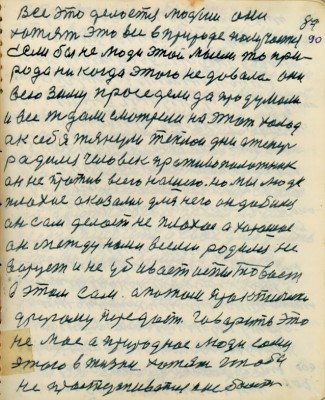 все это делоется людми они 89
хотят это все в природе получается 90
Если бы не люди этой мысли то при
рода никогда этого не довала они
всю зиму проседели да продумали
и все ждали смотрели на этот холод
а к себя тянули теплои дни а теперь
радился человек противоположник
он не против всего нашего. но мы люди
плохие оказали для него он добился
он сам делоет не плохое а хорошее
он между нами всеми родился не
варует и не убивает
в этом сам. а потом практически
другому передает. Гаворить это
не мое а природное люди сами
этого в жизни хотят чтобы
не простуживатся и не болеть.